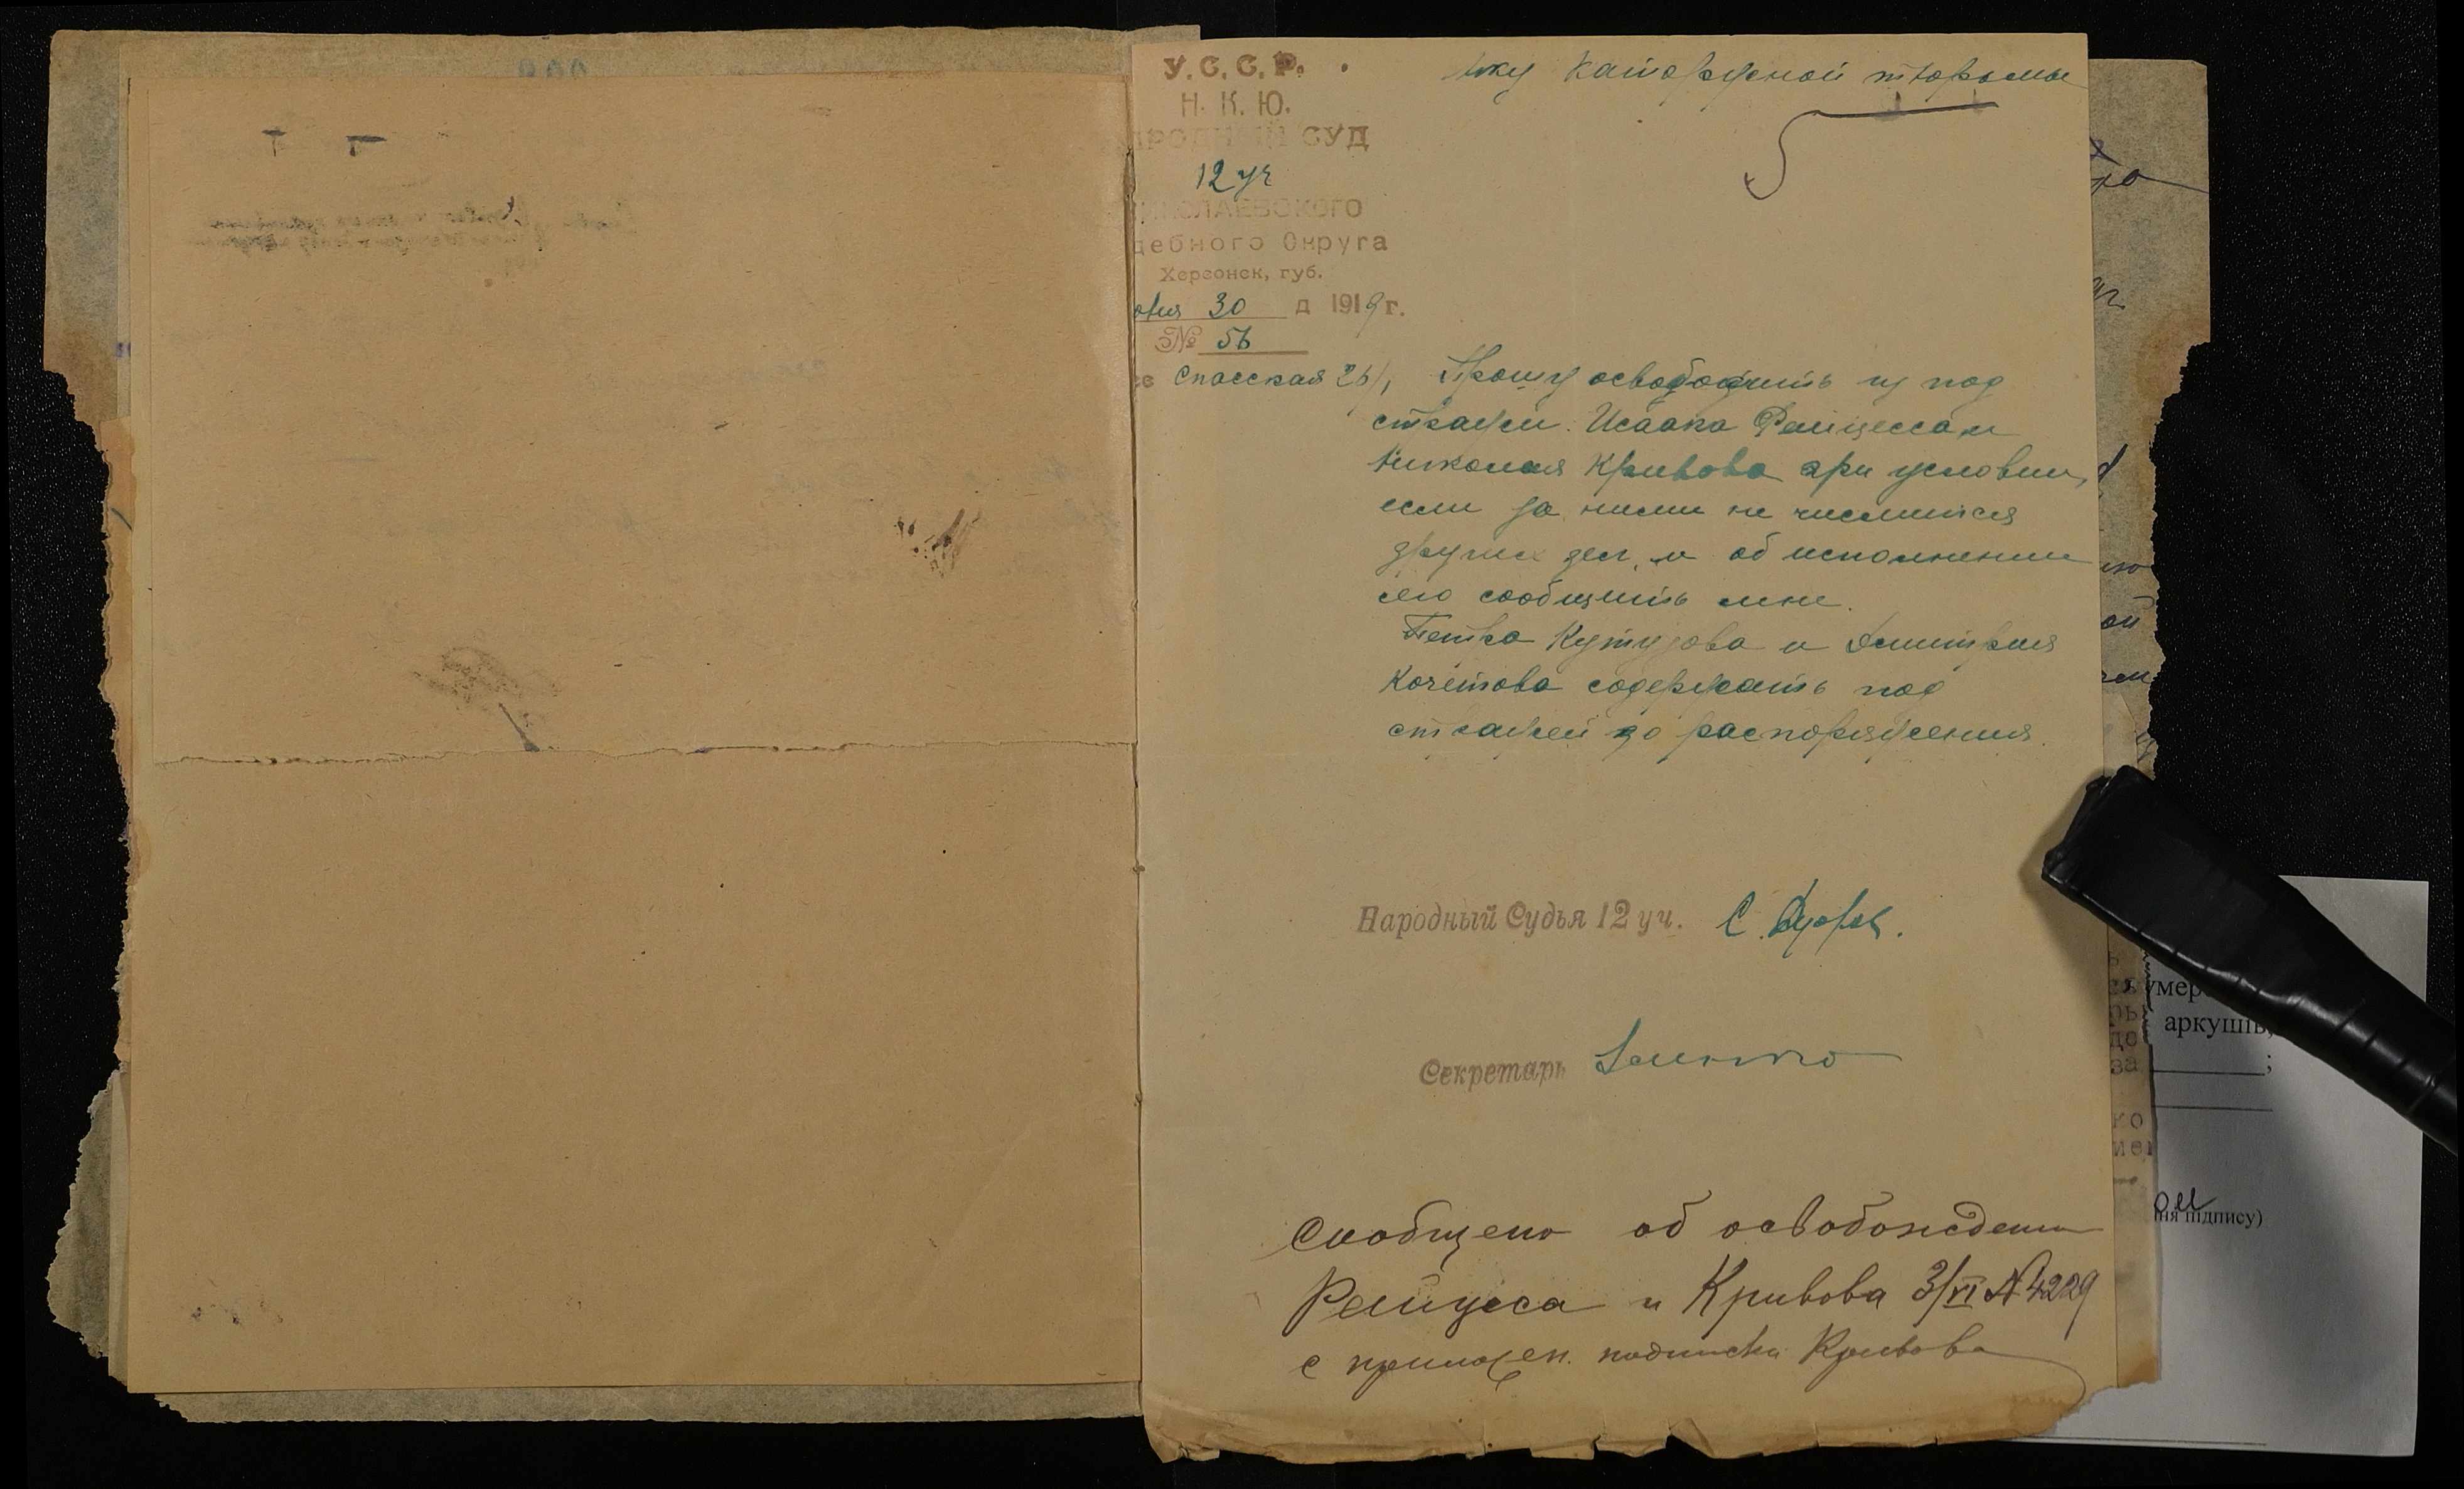 У.С.С.Р.
Н. К. Ю.
РОДНЫЙ СУД
12 уч
НИКОЛАЕВСКОГО
дебного Округа
Херсонск. губ.
30 д 1919 г.
№ 56
Спасская 26/1
Каторжной тюрьмы
Прошу освободить из под
стражи Исаака Рейцесса и
Николая Кривова при условии,
если за ними не числится
других дел, и об исполнении
сего сообщить мне.
Петра Кутузова и Дмитрия
Кочетова содержать под
стражей до распоряжения.
Народный Судья 12 уч. С.
Секретарь
Сообщено об освобождении
Рейцеса и Кривова 3/VI № 4229
с приложен. подписки Кривова
аркушів,
;
підпису)